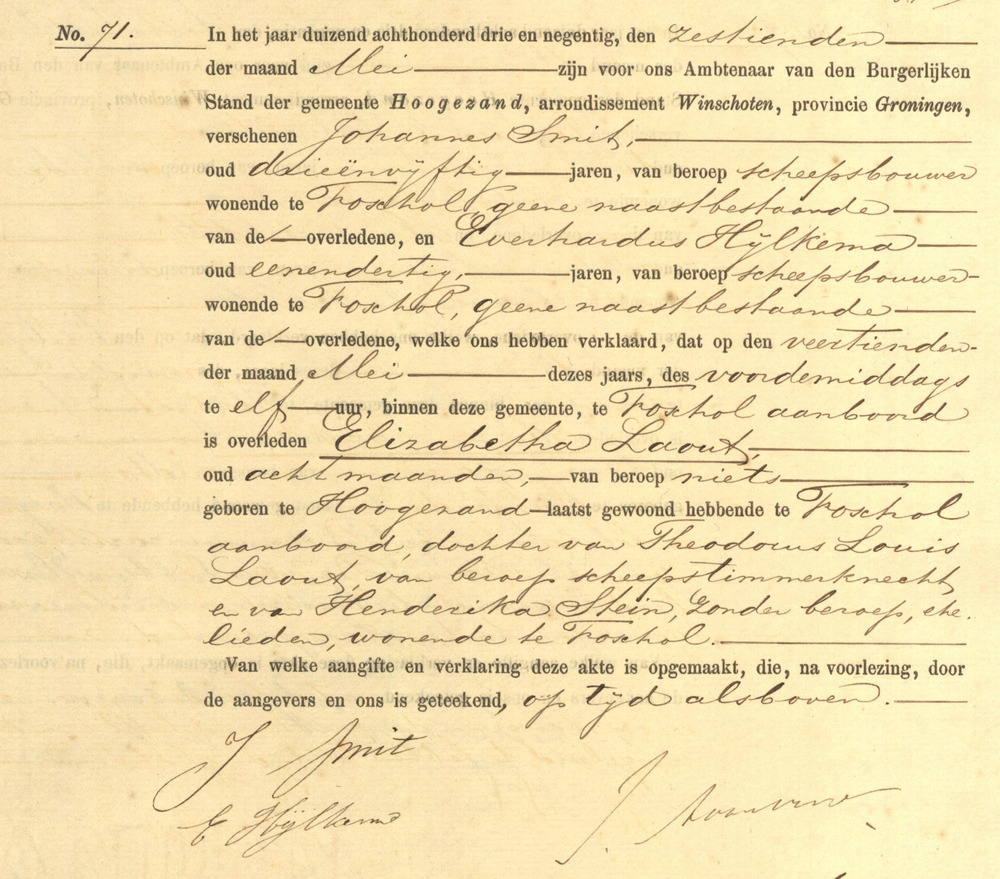 No. 71. In het jaar duizend achthonderd drie en negentig, den zestienden
der maand Mei zijn voor ons Ambtenaar van den Burgerlijken
Stand der gemeente Hoogezand, arrondissement Winschoten, provincie Groningen,
verschenen Johannes Smit,
oud drieënvijftig jaren, van beroep scheepsbouwer
wonende te Foxhol, geene naastbestaande
van de overledene, en Everhardus Hijlkema
oud eenendertig, jaren, van beroep scheepsbouwer
wonende te Foxhol, geene naastbestaande
van de overledene, welke ons hebben verklaard, dat op den veertienden
der maand Mei dezes jaars, des voordemiddags
te elf uur, binnen deze gemeente, te Foxhol aanboord
is overleden Elizabetha Laout,
oud acht maanden, van beroep niets
geboren te Hoogezand laatst gewoond hebbende te Foxhol
aanboord, dochter van Theodorus Louis
Laout, van beroep scheepstimmerknecht,
en van Henderika Stein, zonder beroep, ehe.
lieden, wonende te Foxhol.
Van welke aangifte en verklaring deze akte is opgemaakt, die, na voorlezing, door
de aangevers en ons is geteekend, op tijd alsboven.
J Smit
E Hijlkema
J.